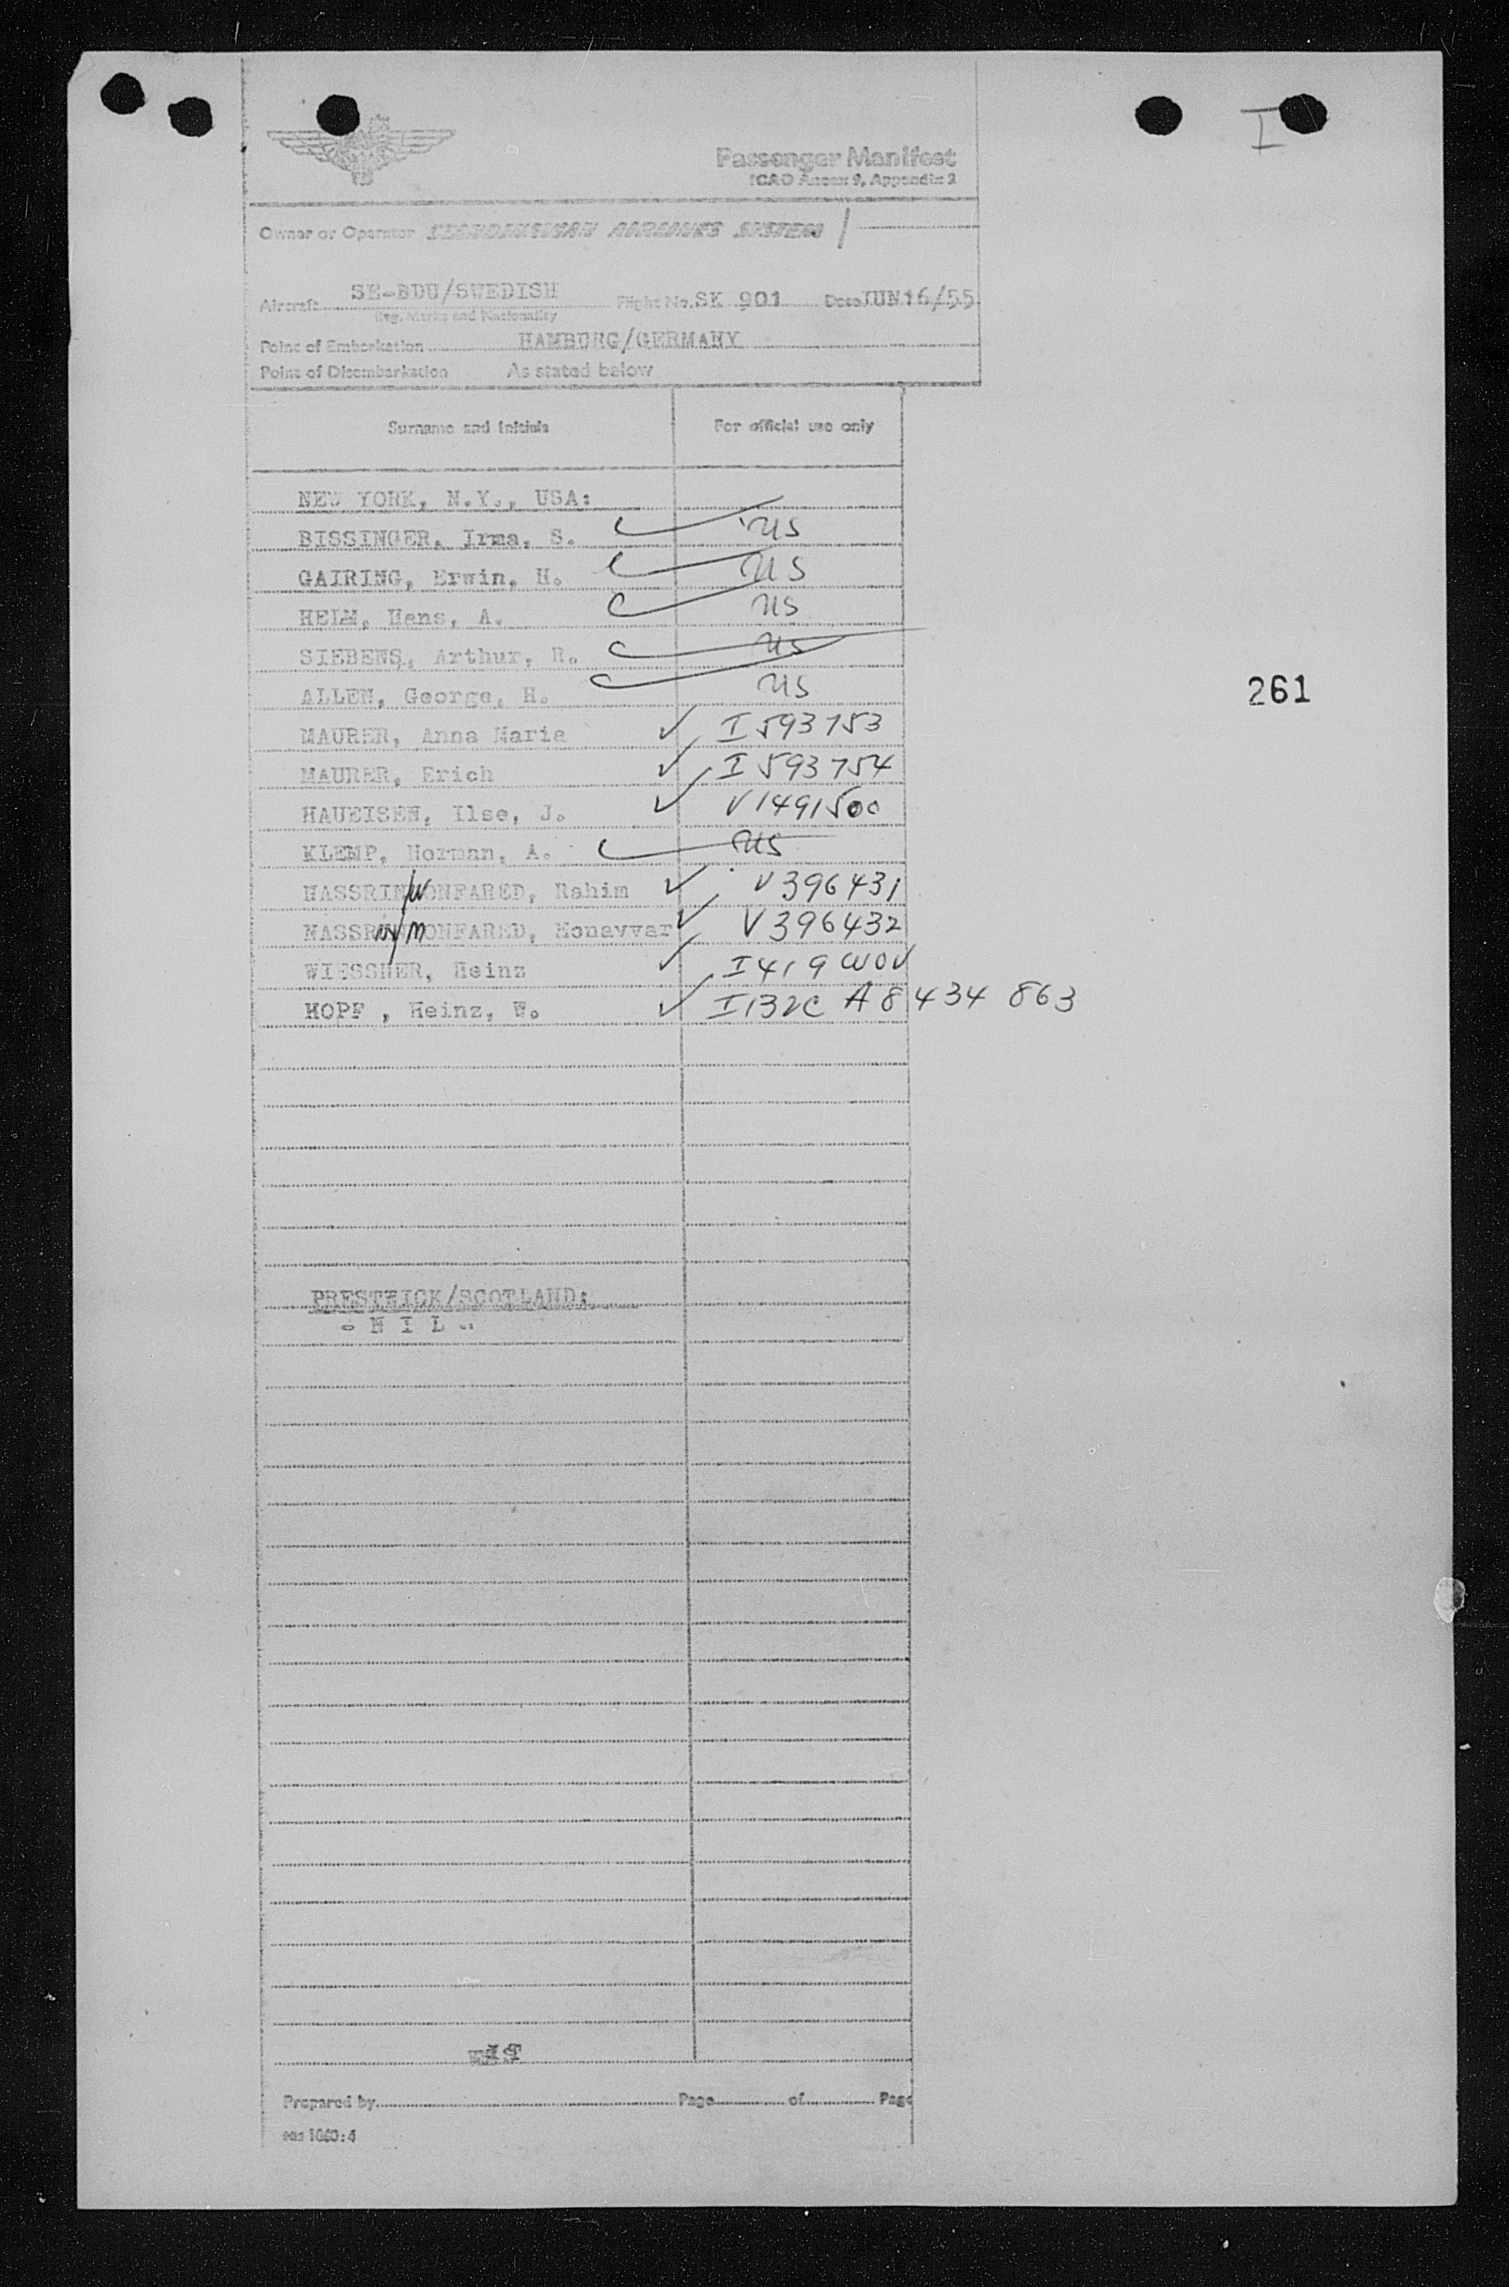 I
Passenger Manifest
ICAO Annex 9, Appendix 2
Owner or Operator SCANDINAVIAN AIRLINES SYSTEM
Aircraft SE-BDU/SWEDISH Flight No. SK 901 Date JUN 16/55
Reg. Marks and Nationality
Point of Embarkation HAMBURG/GERMANY
Point of Disembarkation As stated below
Surname and Initials For official use only
NEW YORK, N.Y., USA:
BISSINGER, Irma, S. US
GAIRING, Erwin, H. US
HEIM, Hans, A. US
SIEBENS, Arthur, R. US
261
ALLEN, George, H. US
MAURER, Anna Maria ✓ I 593753
MAURER, Erich ✓ I 593754
HAUEISEN, Ilse, J. ✓ V 1491500
KLEMP, Norman, A. US
NASSRI MONFARED, Rahim ✓ V 396431
NASSRI MONFARED, Monavvar ✓ V 396432
WIESSNER, Heinz ✓ I 419
HOPF , Heinz, W. ✓ I 132C A8 434 863
PRESTWICK/SCOTLAND:
- N I L -
Prepared by Page of Page
sas 1060:4